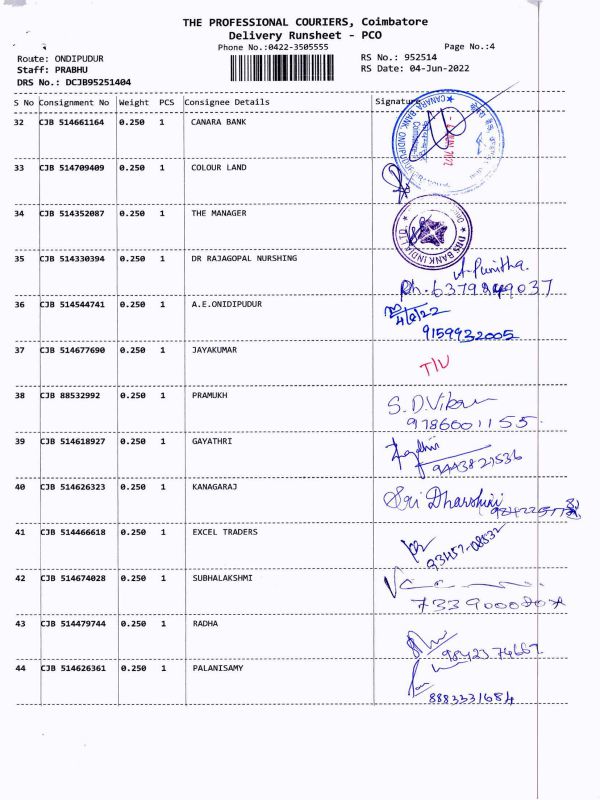 THE PROFESSIONAL COURIERS, Coimbatore
Delivery Runsheet - PCO
Phone No.:0422-3505555 Page No.:4
Route: ONDIPUDUR RS No.: 952514
Staff: PRABHU RS Date: 04-Jun-2022
DRS No.: DCJB95251404
S No Consignment No Weight PCS Consignee Details Signature
32 CJB 514661164 0.250 1 CANARA BANK
33 CJB 514709409 0.250 1 COLOUR LAND
34 CJB 514352087 0.250 1 THE MANAGER
35 CJB 514330394 0.250 1 DR RAJAGOPAL NURSHING
A. Punitha.
36 CJB 514544741 0.250 1 A.E.ONIDIPUDUR
4/6/22
9159932005
37 CJB 514677690 0.250 1 JAYAKUMAR
38 CJB 88532992 0.250 1 PRAMUKH
9786001155
39 CJB 514618927 0.250 1 GAYATHRI
9443821536
40 CJB 514626323 0.250 1 KANAGARAJ Sri Dharshini
41 CJB 514466618 0.250 1 EXCEL TRADERS
93457-08532
42 CJB 514674028 0.250 1 SUBHALAKSHMI
43 CJB 514479744 0.250 1 RADHA
44 CJB 514626361 0.250 1 PALANISAMY
8883331684